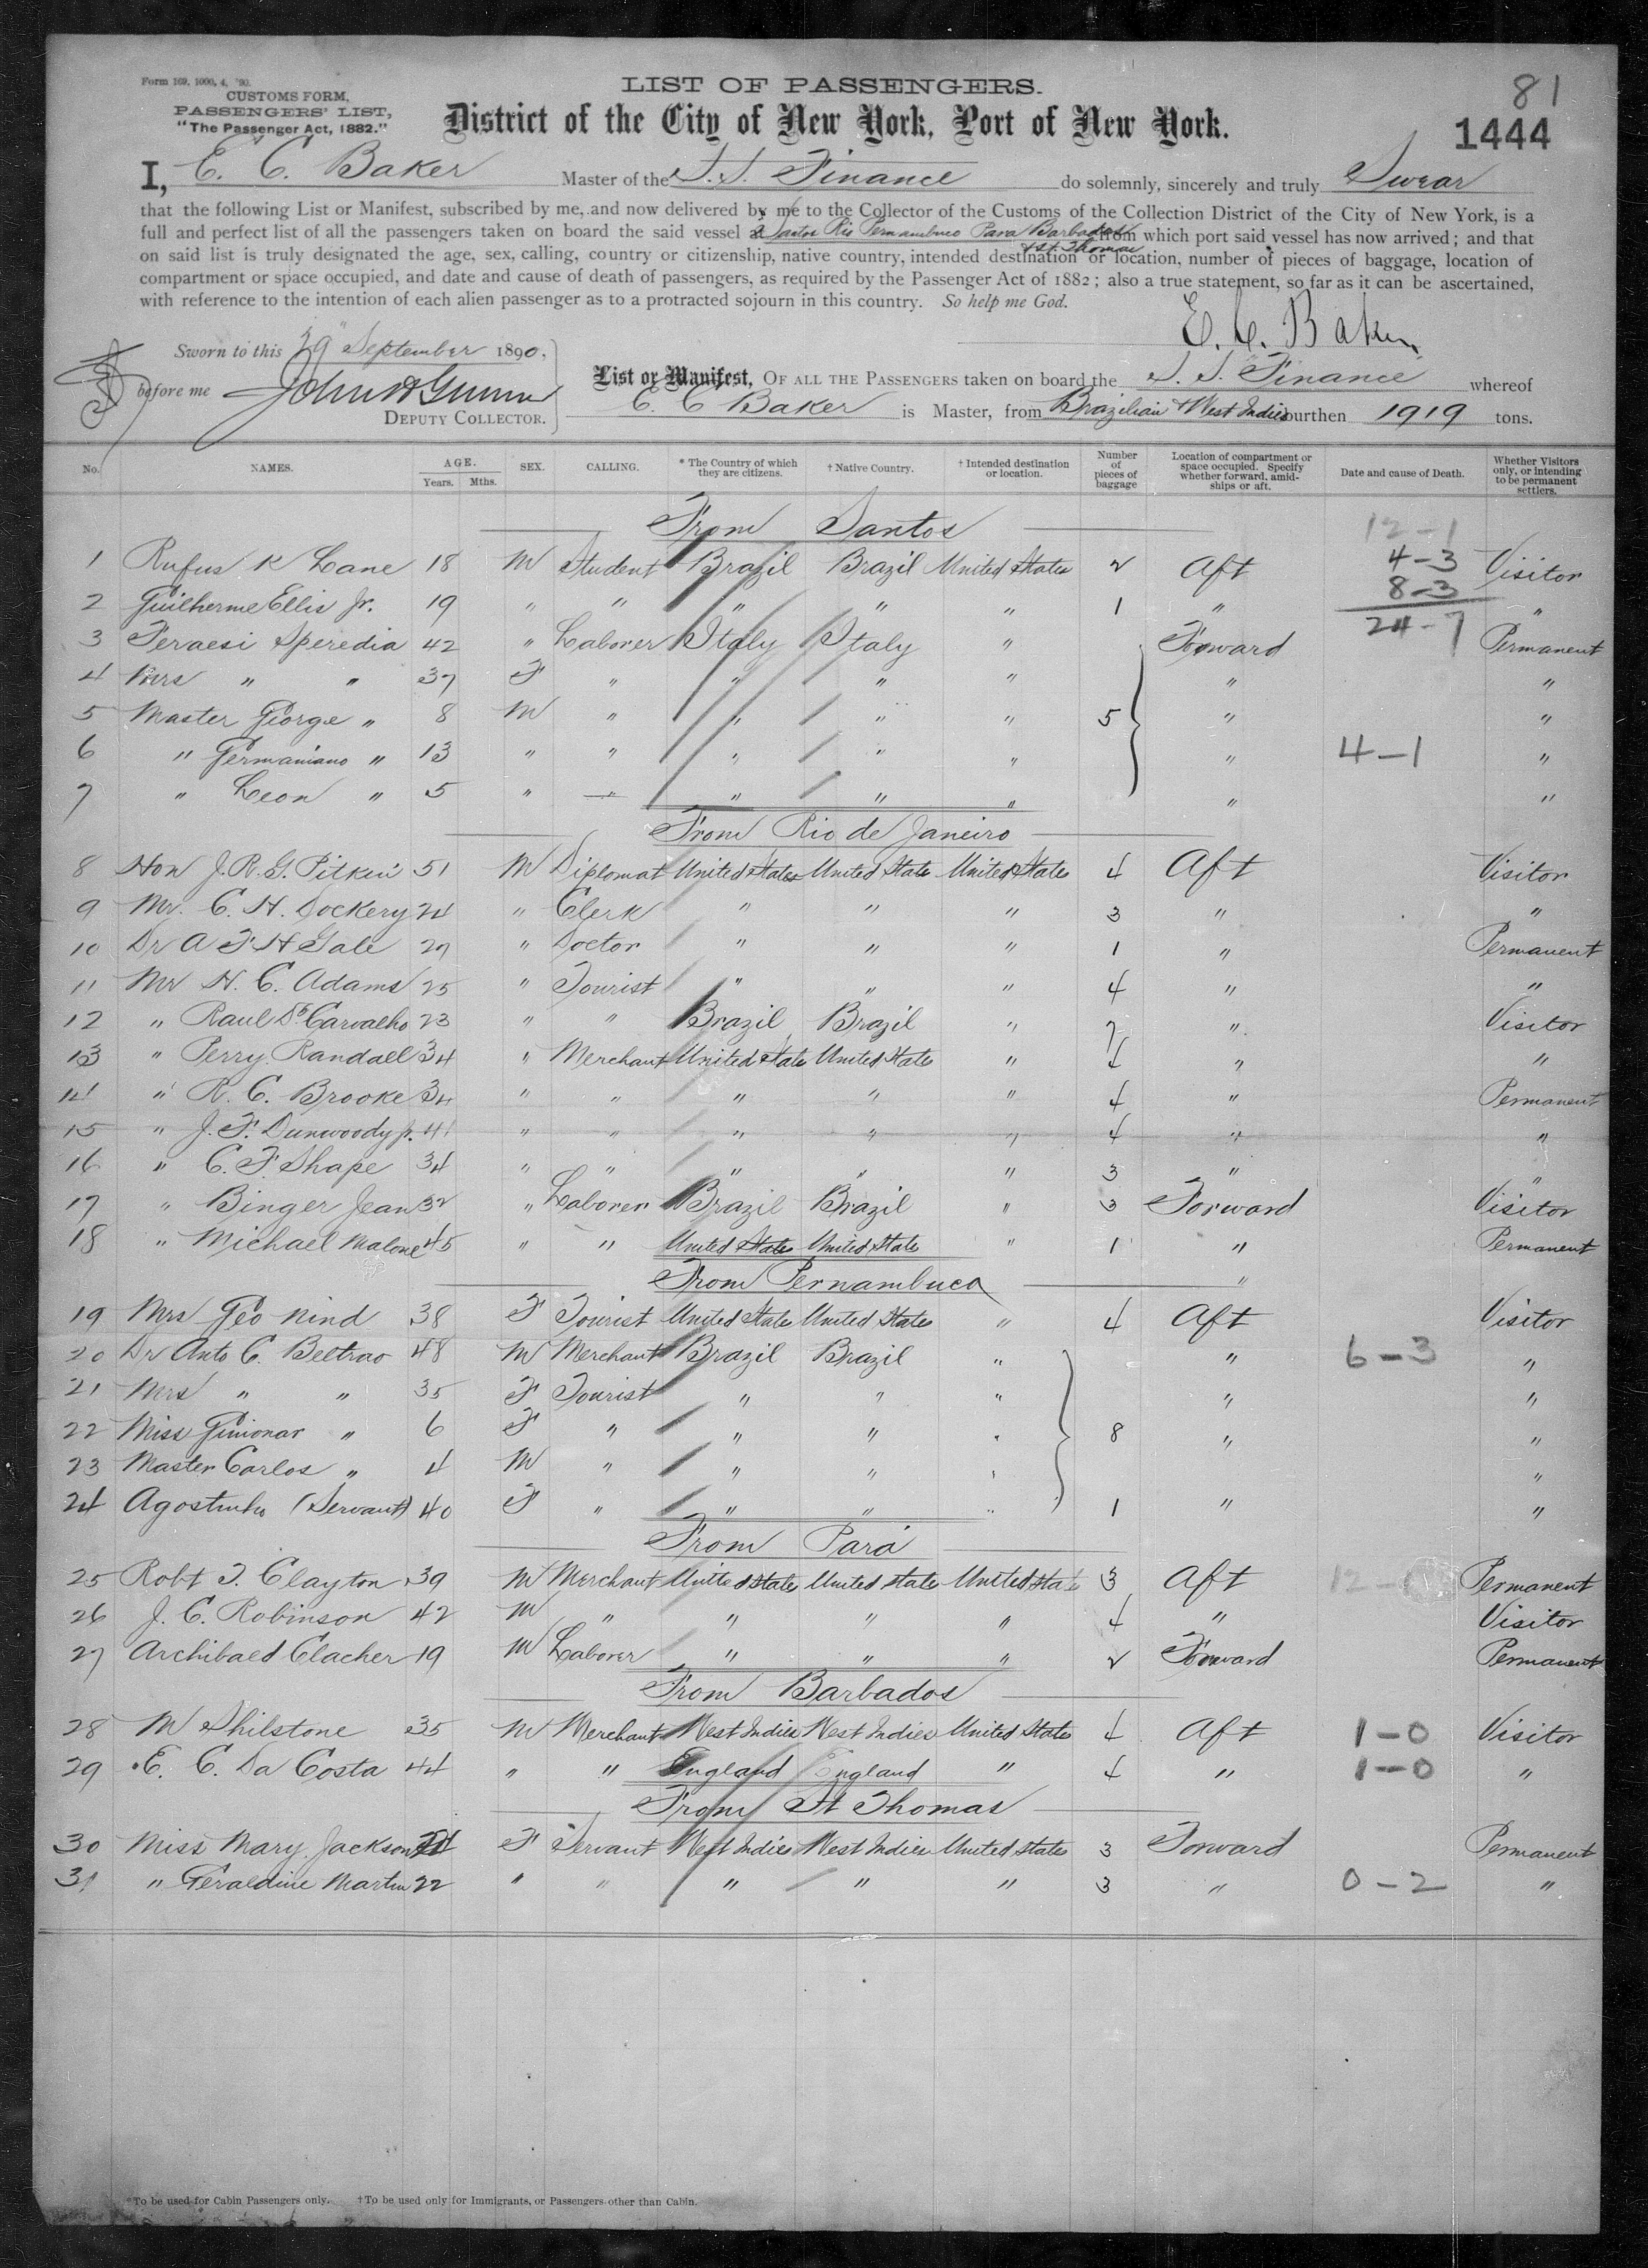 Form 169, 1000, 4, '90.
CUSTOMS FORM,
PASSENGERS' LIST,
"The Passenger Act, 1882."
LIST OF PASSENGERS.
District of the City of New York, Port of New York.
81
1444
I, E. C. Baker Master of the S. S. Finance do solemnly, sincerely and truly Swear
that the following List or Manifest, subscribed by me, and now delivered by me to the Collector of the Customs of the Collection District of the City of New York, is a
full and perfect list of all the passengers taken on board the said vessel at Santos Rio Pernambuco Para Barbados & St. Thomas from which port said vessel has now arrived; and that
on said list is truly designated the age, sex, calling, country or citizenship, native country, intended destination or location, number of pieces of baggage, location of
compartment or space occupied, and date and cause of death of passengers, as required by the Passenger Act of 1882; also a true statement, so far as it can be ascertained,
with reference to the intention of each alien passenger as to a protracted sojourn in this country. So help me God.
E. C. Baker
Sworn to this 29" September 1890,
before me John Gunn
DEPUTY COLLECTOR.
List or Manifest, OF ALL THE PASSENGERS taken on board the S. S. Finance whereof
E. C. Baker is Master, from Brazilian & West Indies burthen 1919 tons.
No. NAMES. AGE. Years. Mths. SEX. CALLING. * The Country of which they are citizens. † Native Country. † Intended destination or location. Number of pieces of baggage Location of compartment or space occupied. Specify whether forward, amidships or aft. Date and cause of Death. Whether Visitors only, or intending to be permanent settlers.
From Santos
12-1
1 Rufus K Lane 18 M Student Brazil Brazil United States 2 Aft 4-3 Visitor
8-3
2 Guilherme Ellis Jr. 19 " " " " " 1 " "
24-7
3 Feraesi Speredia 42 " Laborer Italy Italy " Forward Permanent
4 Mrs " " 37 F " " " " " "
5 Master George " 8 M " " " " 5 " "
6 " Germaniano " 13 " " " " " " 4-1 "
7 " Leon " 5 " — " " " " "
From Rio de Janeiro
8 Hon J. R. G. Pitkin 51 M Diplomat United States United States United States 4 Aft Visitor
9 Mr. C. H. Dockery 24 " Clerk " " " 3 " "
10 Dr A F H Gale 27 " Doctor " " " 1 " Permanent
11 Mr H. C. Adams 25 " Tourist " " " 4 " "
12 " Raul De Carvalho 23 " " Brazil Brazil " 7 " Visitor
13 " Perry Randall 34 " Merchant United States United States " 4 " "
14 " R. C. Brooke 34 " " " " " 4 " Permanent
15 " J. F. Dunwoody jr. 41 " " " " " 4 " "
16 " C. F Shape 34 " " " " " 3 " "
17 " Binger Jean 32 " Laborer Brazil Brazil " 3 Forward Visitor
18 " Michael Malone 45 " " United States United States " 1 " Permanent
From Pernambuco "
19 Mrs Geo Nind 38 F Tourist United States United States " 4 Aft Visitor
20 Dr Anto C. Beltrao 48 M Merchant Brazil Brazil " " 6-3 "
21 Mrs " " 35 F Tourist " " " " "
22 Miss Guionar " 6 F " " " " 8 " "
23 Master Carlos " 4 M " " " " "
24 Agostinho (Servant) 40 F " " " " 1 " "
From Pará
25 Robt T. Clayton 39 M Merchant United States United States United States 3 Aft Permanent
26 J. C. Robinson 42 M " " " " 4 " Visitor
27 Archibald Clacher 19 M Laborer " " " 2 Forward Permanent
From Barbados
28 M Shilstone 35 M Merchant West Indies West Indies United States 4 Aft 1-0 Visitor
29 E. C. Da Costa 44 " " England England " 4 " 1-0 "
From St Thomas
30 Miss Mary Jackson F Servant West Indies West Indies United States 3 Forward Permanent
31 " Geraldine Martin 22 " " " " " 3 " 0-2 "
*To be used for Cabin Passengers only. †To be used only for Immigrants, or Passengers other than Cabin.